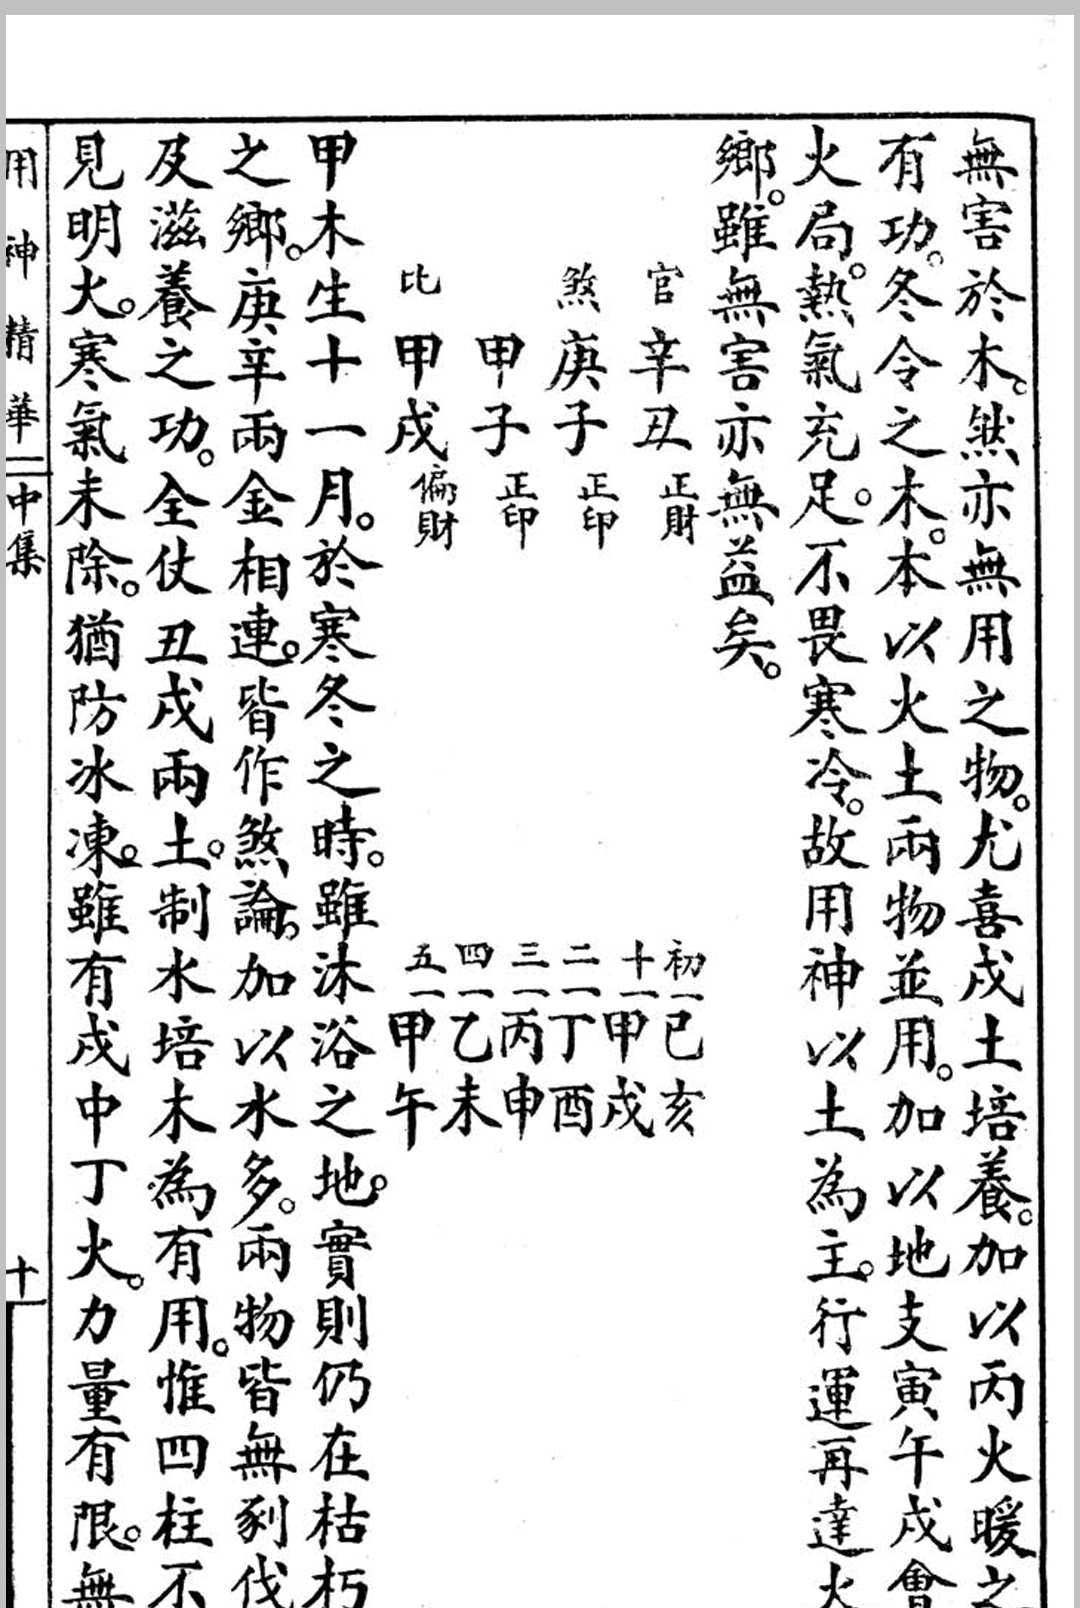 無害於木。然亦無用之物。尤喜戌土培養。加以丙火暖之
有功。冬令之木。本以火土兩物並用。加以地支寅午戌會
火局。熱氣充足。不畏寒冷。故用神以土為主。行運再達火
鄉。雖無害亦無益矣。
官 辛丑 正財
煞 庚子 正印
甲子 正印
比 甲戌 偏財
初一 己亥
十一 甲戌
二一 丁酉
三一 丙申
四一 乙未
五一 甲午
甲木生十一月。於寒冬之時。雖沐浴之地。實則仍在枯朽
之鄉。庚辛兩金相連。皆作煞論。加以水多。兩物皆無剎伐
及滋養之功。全仗丑戌兩土。制水培木為有用。惟四柱不
見明火。寒氣未除。猶防冰凍。雖有戌中丁火。力量有限。無
用神精華 中集 十